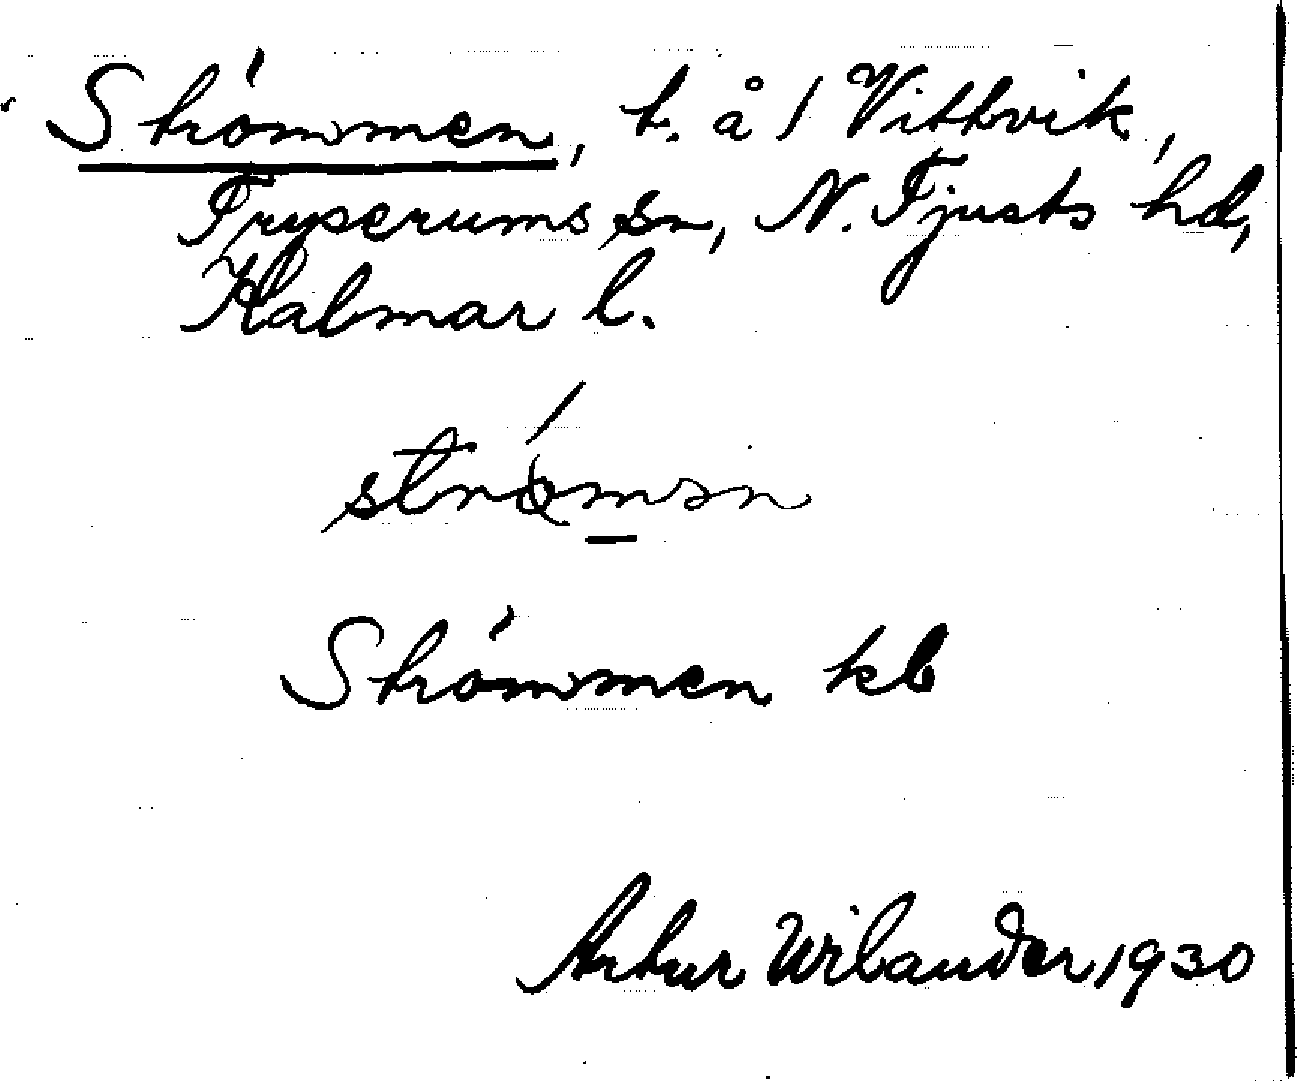 Strömmen, t. å 1 Vittvik,
Tryserums sn, N. Tjusts hd,
Kalmar l.
Strömmen kb
Artur Wilander 1930